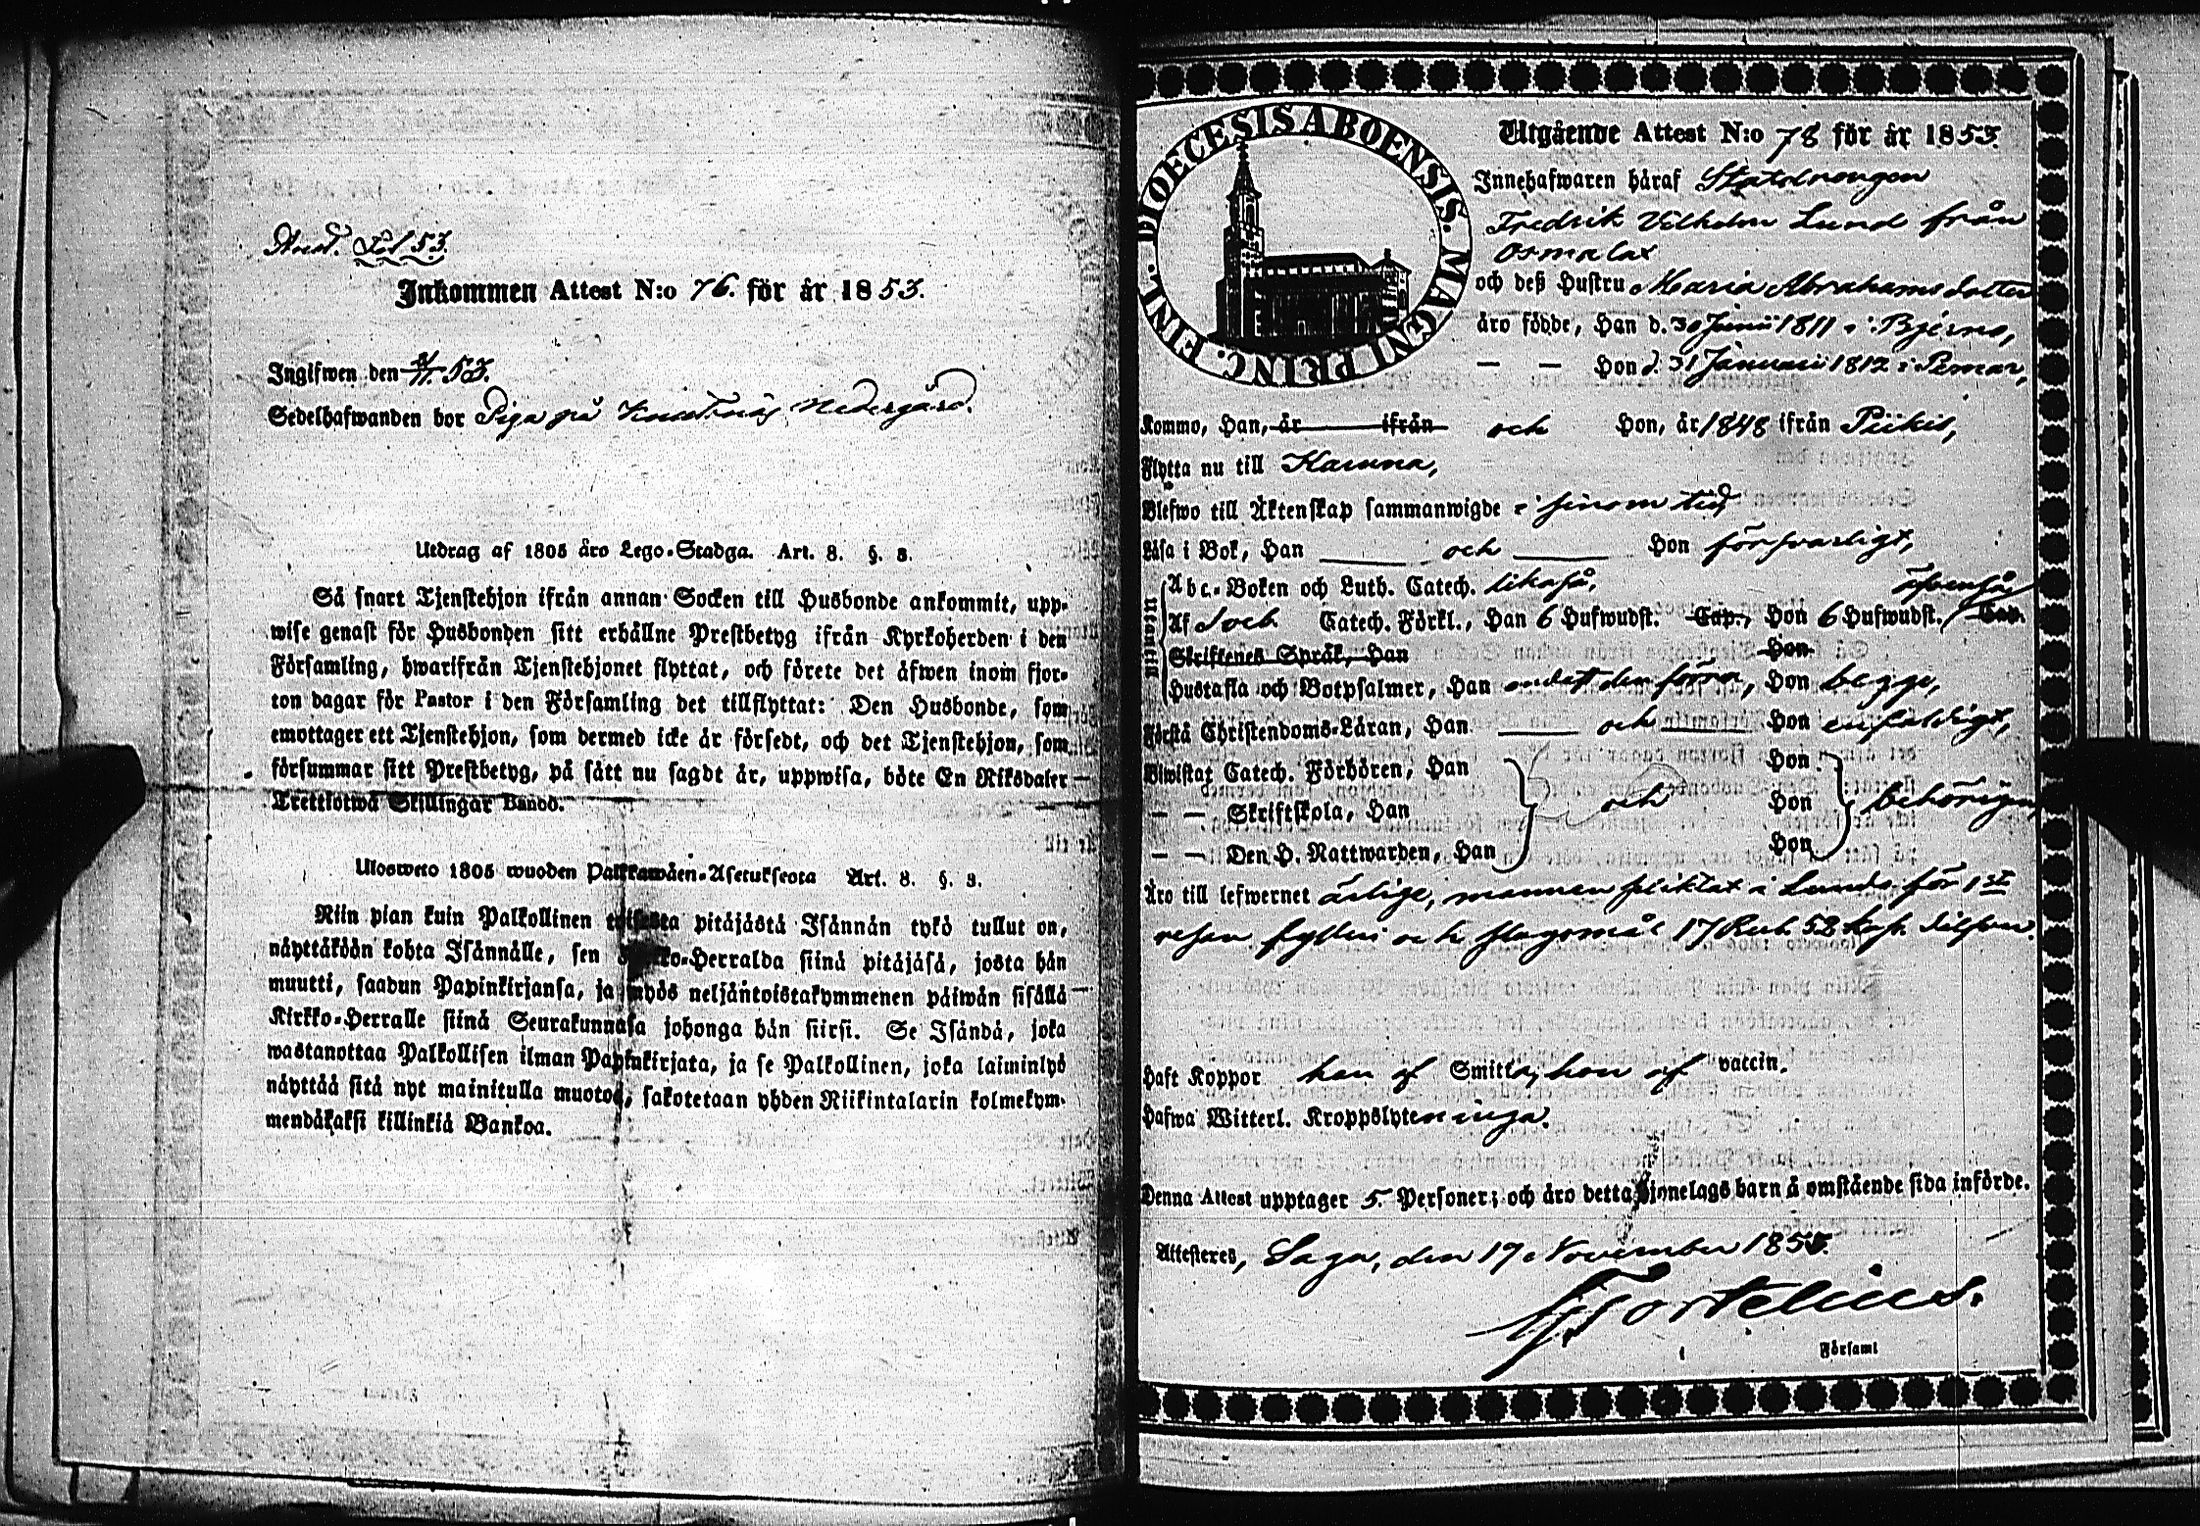 Ant. Fol 53.
Inkommen Attest N:o 76. för år 1853.
Ingifwen den 53.
Sedelhafwanden bor Piga på Nedergård.
Utdrag af 1805 års Lego-Stadga. Art. 8. §. 3.
Så snart Tjenstehjon ifrån annan Socken till Husbonde ankommit, upp-
wise genast för Husbonden sitt erhållne Prestbetyg ifrån Kyrkoherden i den
Församling, hwarifrån Tjenstehjonet flyttat, och förete det äfwen inom fjor-
ton dagar för Pastor i den Församling det tillflyttat: Den Husbonde, som
emottager ett Tjenstehjon, som dermed icke är försedt, och det Tjenstehjon, som
försummar sitt Prestbetyg, på sätt nu sagdt är, uppwisa, böte En Riksdaler
Trettiotwå Skillingar Banco.
Ulosweto 1805 wuoden Palkkawäen-Asetuksesta Art. 8. §. 3.
Niin pian kuin Palkollinen toisesta pitäjästä Isännän tykö tullut on,
näyttäköön kohta Isännälle, sen Kirkko-Herralda siinä pitäjäsä, josta hän
muutti, saadun Papinkirjansa, ja myös neljäntoistakymmenen päiwän sisällä
Kirkko-Herralle siinä Seurakunnasa johonga hän siirsi. Se Isändä, joka
wastanottaa Palkollisen ilman Papinkirjata, ja se Palkollinen, joka laiminlyö
näyttää sitä nyt mainitulla muotoa, sakotetaan yhden Riikintalarin kolmekym-
mendäkaksi killinkiä Bankoa.
DIOECESIS ABOENSIS. MAGNI PRINC. FINL.
Utgående Attest N:o 78 för år 1853.
Innehafwaren häraf Statdrengen
Fredrik Vilhelm Lund från
Osmalax
och deß Hustru Maria Abrahams dotter
äro födde, Han d. 30 Junii 1811 i Bjerno,
— — Hon d. 31 Januarii 1812 i Pemar,
Kommo, Han, år ifrån och Hon, år 1848 ifrån Piikis,
Flytta nu till Karuna,
Blefwo till Äktenskap sammanwigde i sinom tid
Läsa i Bok, Han och Hon försvarligt,
Utantill
Abc.-Boken och Luth. Catech. likaså, äfvenså,
Af Catech. Förkl., Han 6 Hufwudst. Cap., Hon 6 Hufwudst. Cap.
Skriftenes Språk, Han Hon
Hustafla och Botpsalmer, Han endast den förra, Hon begge,
Förstå Christendoms-Läran, Han och Hon enfaldigt,
Biwistat Catech. Förhören, Han Hon
— — Skriftskola, Han och Hon behörigen,
— — Den H. Nattwarden, Han Hon
Äro till lefwernet ärlige, mannen pliktat i Lunda för 1st
resan fylleri och slagsmål 17 Rub. 52 kop. silfver.
Haft Koppor han af Smitta, hon af vaccin.
Hafwa Witterl. Kroppslyten inga.
Denna Attest upptager 5. Personer; och äro detta hjonelags barn å omstående sida införde.
Attesteres, Sagu, den 17 November 1853.
Fortelius.
Församl